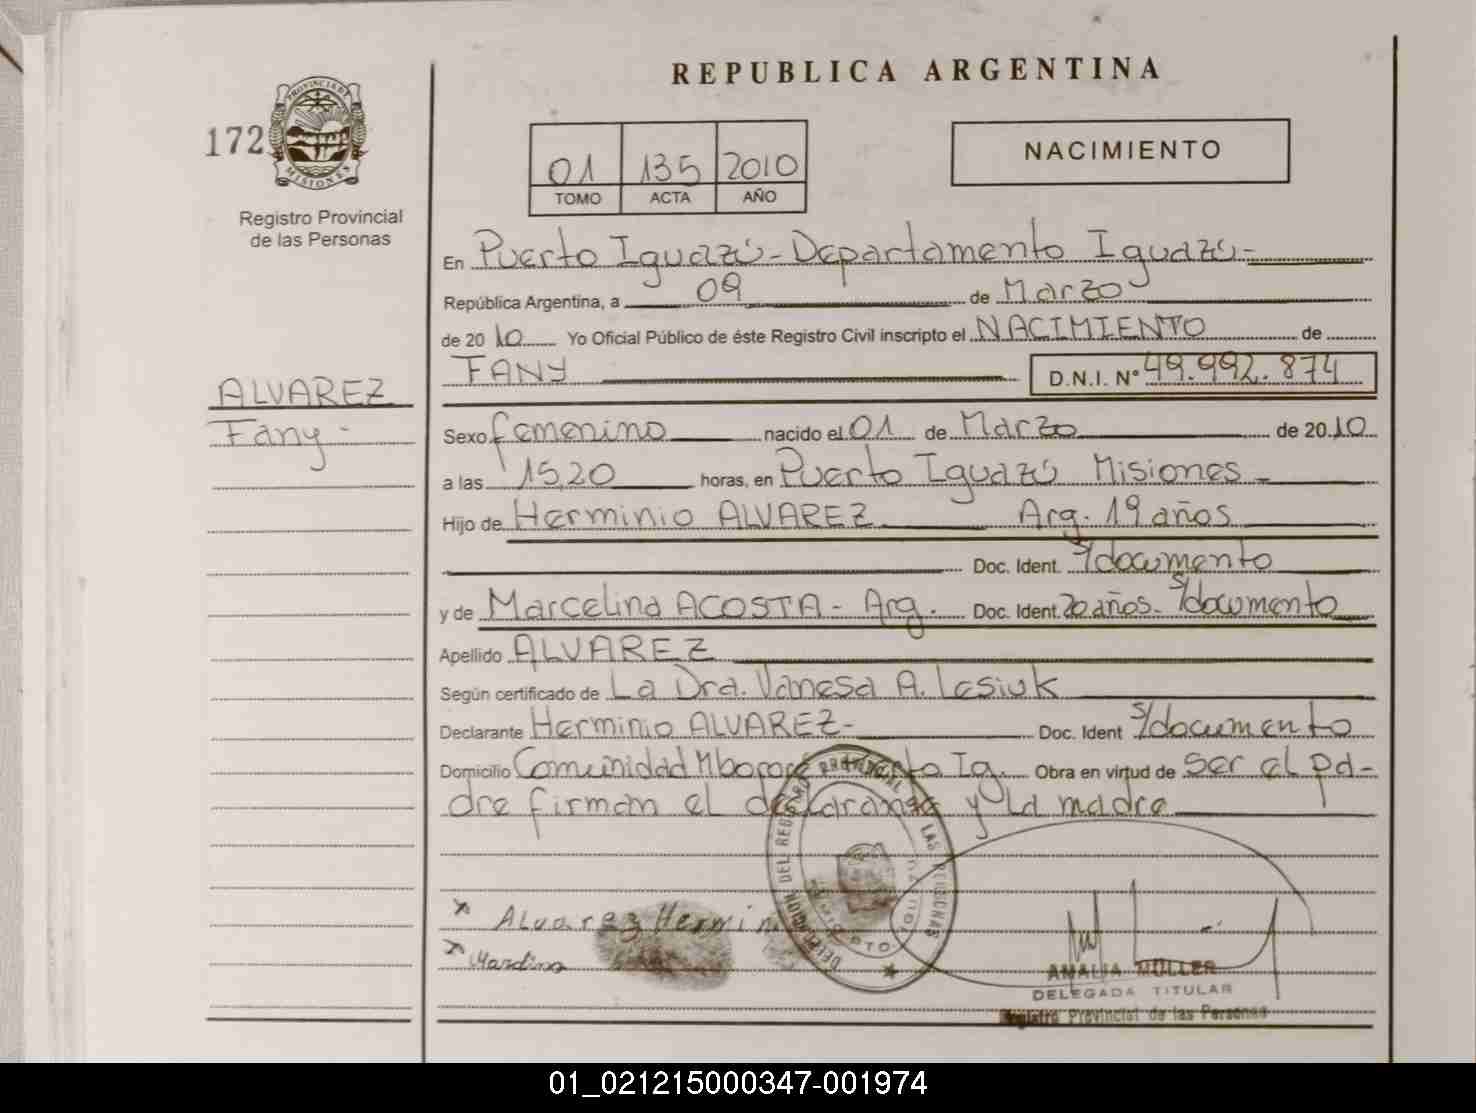 REPUBLICA ARGENTINA
172
PROVINCIA DE MISIONES
Registro Provincial
de las Personas
01 135 2010
TOMO ACTA AÑO
NACIMIENTO
En Puerto Iguazú - Departamento Iguazú -
República Argentina, a 09 de Marzo
de 2010 Yo Oficial Público de éste Registro Civil inscripto el NACIMIENTO de
FANY D.N.I. N° 49.992.874
ALVAREZ
Fany -
Sexo femenino nacido el 01 de Marzo de 2010
a las 15,20 horas, en Puerto Iguazú Misiones -
Hijo de Herminio ALVAREZ Arg. 19 años
Doc. Ident. s/documento
y de Marcelina ACOSTA - Arg. Doc. Ident. 20 años - s/documento
Apellido ALVAREZ
Según certificado de La Dra. Vanesa A. Lesiuk
Declarante Herminio ALVAREZ - Doc. Ident s/documento
Domicilio Comunidad Mbororé Puerto Ig. Obra en virtud de ser el pa-
dre firman el declarante y la madre
x Alvarez Hermin
x
DELEGACION DEL REGISTRO PROVINCIAL DE LAS PERSONAS
AMALIA MÜLLER
DELEGADA TITULAR
Registro Provincial de las Personas
01_021215000347-001974